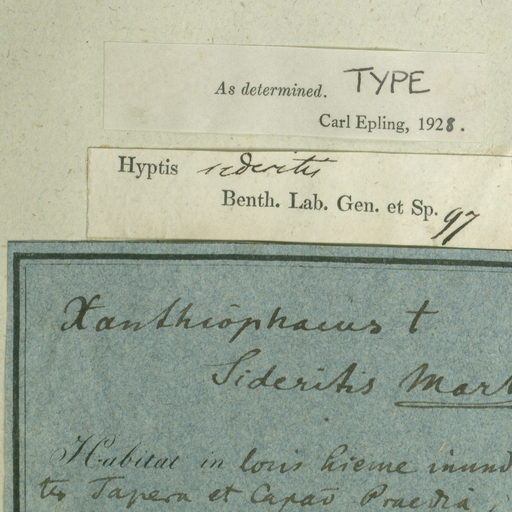 As determined. TYPE
Carl Epling, 1928.
Hyptis sideritis
Benth. Lab. Gen. et Sp. 97
Xanthiophaeus †
Sideritis Mart
Habitat in locis hieme inund
Tapera et Capaō Praedia,